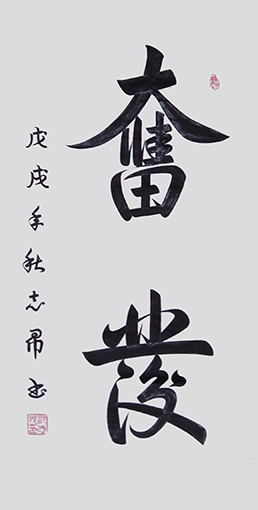 奮發
戊戌年秋志書